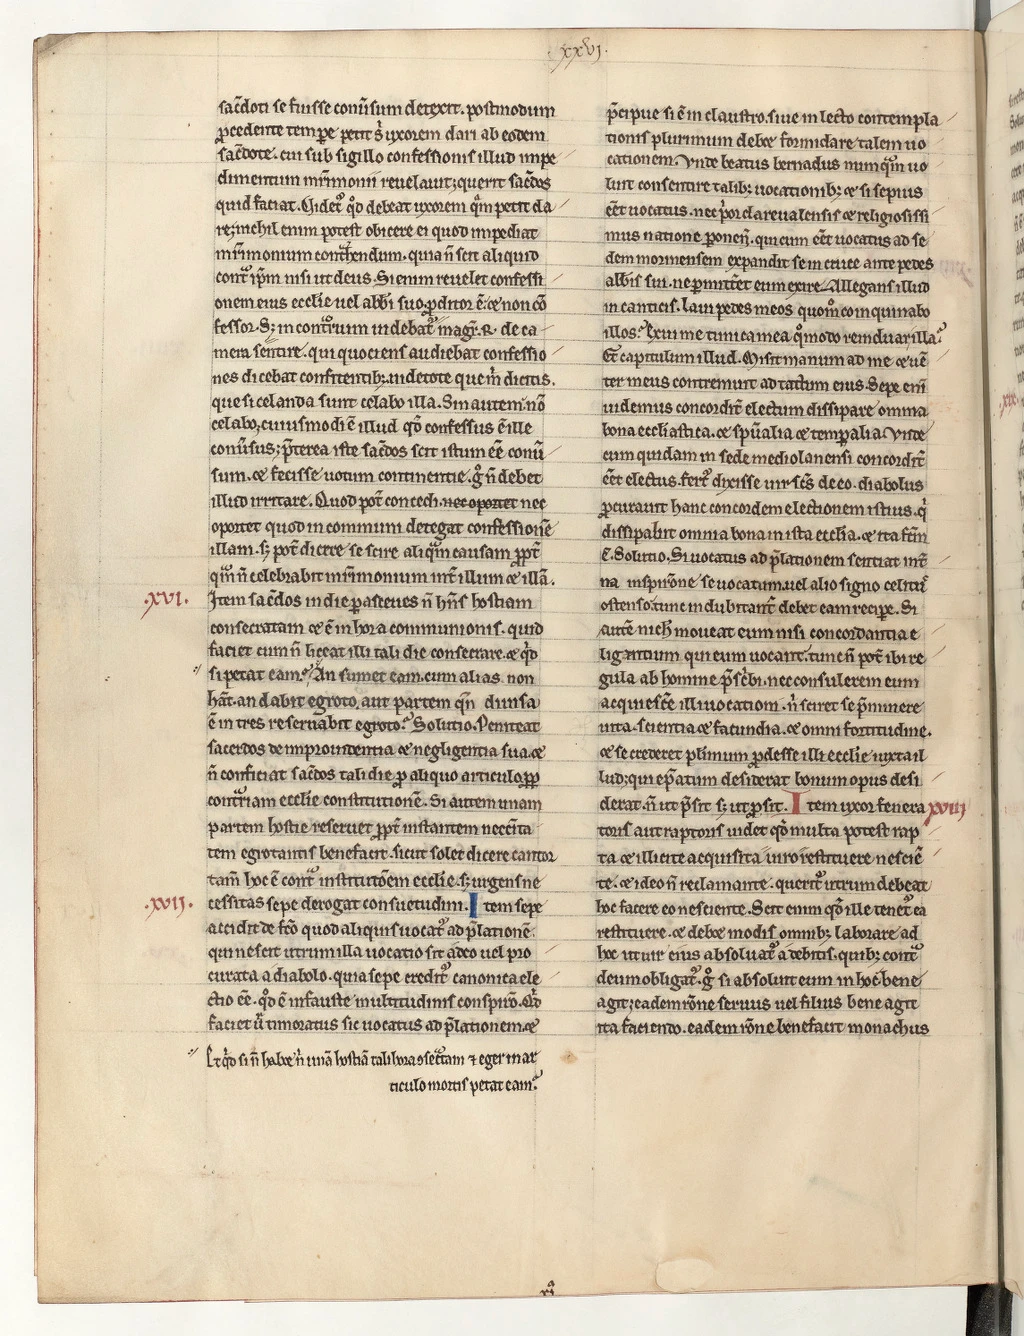 .xxvi.
sac̄doti se fuisse conūsum detexit. postmodum
ꝓcedente tempe petit s᷒ uxorem dari ab eodem
sac̄dote. cui sub sigillo confessionis illud impe
dimentum mr̄imonii reuelauit; querit sac̄dos
quid faciat. Uidet᷒ qd̓ debeat uxorem qm̄ petit da
re; nichil enim potest obicere ei quod impediat
mr̄imonium cont̓hendum. quia n̄ scit aliquid
cont̓ ip̄m nisi ut deus. Si enim reuelet confessi
onem eius ecclīe uel abb̄i suo. ꝓditor ē. ⁊ non cō
fessor. Sꝫ in cont̓rium uidebat᷒ mag̓r. R. de ca
mera sentire. qui quociens audiebat confessio
nes dicebat confitentibꝫ. uidetote quem̄ dicitis.
que si celanda sunt celabo illa. Sin autem. nō
celabo; cuiusmodi ē illud qd̓ confessus ē ille
conūsus; p̄terea iste sac̄dos scit istum eē conū
sum. ⁊ fecisse uotum continentie. g̊ n̄ debet
illud irritare. Quod pōt concedi. nec oportet nec
oportet quod in communi detegat confessionē
illam. sꝫ pōt dicere se scire aliqm̄ causam ꝓpt̄
qm̄ n̄ celebrabit mr̄imonium int̄ illum ⁊ illā.
.xvi. Item sac̄dos in die parasceues n̄ hn̄s hostiam
consecratam ⁊ ē in hora communionis. quid
faciet cum n̄ liceat illi tali die consecrare. ⁊ qd̓
si petat eam. An sumet eam. cum alias non
hāt. an dabit egroto, aut partem qn̄ diuisa
ē in tres reseruabit egroto. Solutio. Peniteat
sacerdos de improuidentia ⁊ negligentia sua. ⁊
n̄ conficiat sac̄dos tali die ꝓ aliquo articulo ꝓp̄
cont̓riam ecclīe constitutionē. Si autem unam
partem hostie reseruet ꝓpt̄ instantem necc̄ita
tem egrotantis benefacit. sicut solet dicere cantor
tam̄ hoc ē cont̓ institutōem ecclīe. sꝫ urgens ne
.xvii. cessitas sepe derogat consuetudini. Item sepe
accidit de fc̄o quod aliquis uocat᷒ ad p̄lationē.
qui nescit utrum illa uocatio sit a deo uel pro
curata a diabolo. quia sepe credit᷒ canonica ele
ctio eē. qd̓ ē infauste multitudinis conspirō. Qd̓
faciet ū timoratus sic uocatus ad p̄lationem. ⁊
Et qd̓ si n̄ habet n̄ unā hostiā tali hora ɔsec̄tam ⁊ eger in ar
ticulo mortis petat eam.
p̄cipue si ē in claustro. siue in lecto contempla
tionis plurimum debet formidare talem uo
cationem. Vnde beatus bernadus numqm̄ uo
luit consentire talibꝫ uocationibꝫ ⁊ si sepius
eēt uocatus. nec p̓or clareuallensis ⁊ religiosissi
mus natione
qui cum eēt uocatus ad se
dem morinensem expandit se in cruce ante pedes
abb̄is sui. ne ꝑmittet eum exire. Allegans illud
in canticis. laui pedes meos quom̊ coinquinabo
illos. Exui me tunica mea qm̊odo reinduar illa.
Et capitulum illud. Misit manum ad me ⁊ uē
ter meus contremuit ad tactum eius. Sepe eni᷒
uidemus concordit̄ electum dissipare omnia
bona ecclīastica. ⁊ spūalia ⁊ temꝑalia. Vnde
cum quidam in sede mediolanensi concordit̄
eēt electus. fert᷒ dixisse uir sc̄s de eo. diabolus
ꝓcurauit hanc concordem electionem istius. q̓
dissipabit omnia bona in ista ecclīa. ⁊ ita fc̄m
ē. Solutio. Si uocatus ad p̄lationem sentiat int̄
na inspirōne se uocatum. uel alio signo celitus
ostenso. tunc indubitant̄ debet eam recipe. Si
autē nichil moueat eum nisi concordantia e
ligentium qui eum uocant. tunc n̄ pōt ibi re
gula ab homine p̄sc̓bi. nec consulerem eum
acquiesc̄e illi uocationi. n̓ sciret se p̄minere
uita. scientia ⁊ facundia. ⁊ omni fortitudine.
⁊ se crederet pl̓imum ꝓdesse illi ecclīe iuxta il
lud; qui ep̄atum desiderat bonum opus desi
derat. n̄ ut p̄sit sꝫ ut ꝓsit. Item uxor fenera xviii
toris aut raptoris uidet qd̓ multa potest rap
ta ⁊ illicite acquisita uiro restituere nesciē
te. ⁊ ideo n̄ reclamante. querit᷒ utrum debeat
hoc facere eo nesciente. Scit enim qd̓ ille tenet᷒ ea
restituere. ⁊ debet modis omnibꝫ laborare ad
hoc ut uir eius absoluat᷒ a debitis. quibꝫ cont̓
deum obligat᷒. g̊ si absoluit eum in hoc. bene
agit; eadem rōne seruus uel filius bene agit
ita faciendo. eadem rōne benefacit monachus